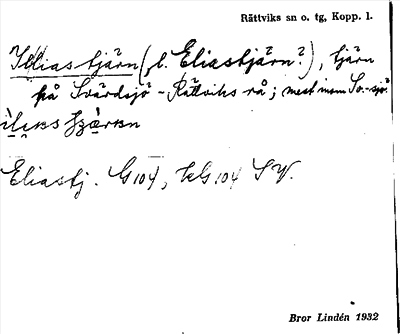 Rättviks sn o. tg, Kopp. l.
Illiastjärn (, l. Eliastjärn?), tjärn
på Svärdsjö - Rättviks rå; mest inom Sv.-sjö.
Eliastj. G104, kG104 SV.
Bror Lindén 1932